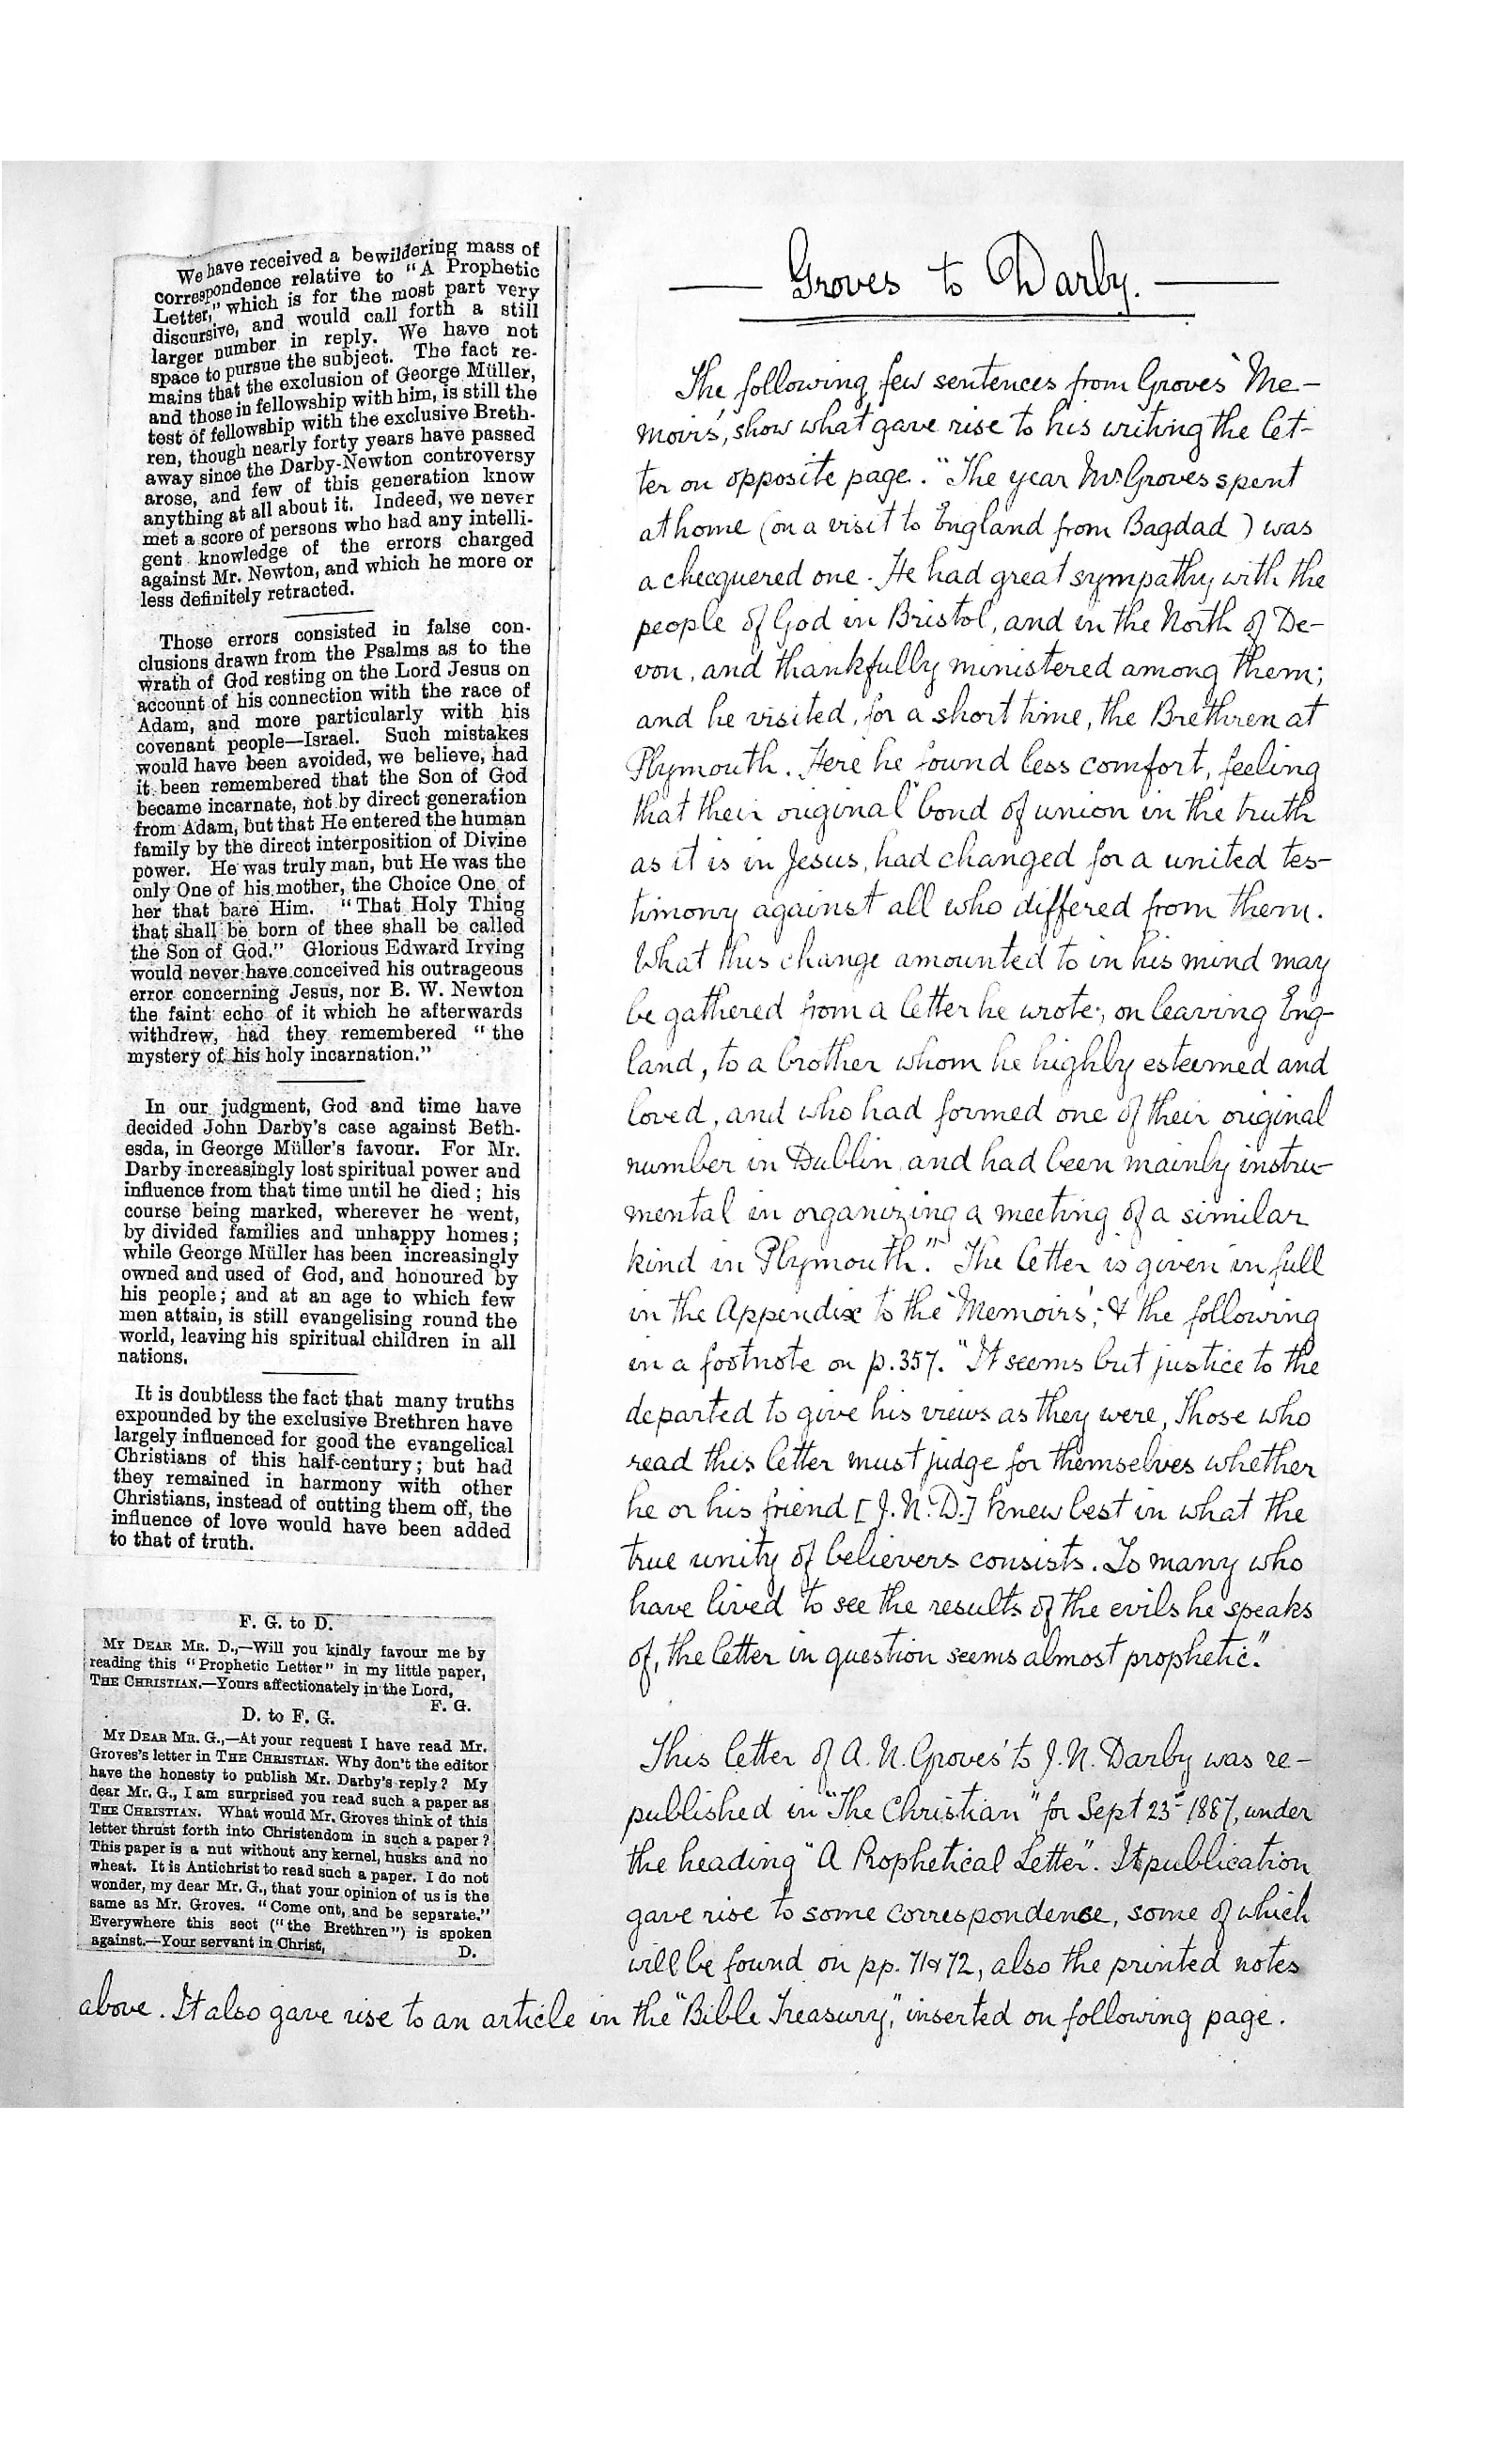 We have received a bewildering mass of
correspondence relative to "A Prophetic
Letter," which is for the most part very
discursive, and would call forth a still
larger number in reply. We have not
space to pursue the subject. The fact re-
mains that the exclusion of George Müller,
and those in fellowship with him, is still the
test of fellowship with the exclusive Breth-
ren, though nearly forty years have passed
away since the Darby-Newton controversy
arose, and few of this generation know
anything at all about it. Indeed, we never
met a score of persons who had any intelli-
gent knowledge of the errors charged
against Mr. Newton, and which he more or
less definitely retracted.
Those errors consisted in false con-
clusions drawn from the Psalms as to the
wrath of God resting on the Lord Jesus on
account of his connection with the race of
Adam, and more particularly with his
covenant people—Israel. Such mistakes
would have been avoided, we believe, had
it been remembered that the Son of God
became incarnate, not by direct generation
from Adam, but that He entered the human
family by the direct interposition of Divine
power. He was truly man, but He was the
only One of his mother, the Choice One of
her that bare Him. "That Holy Thing
that shall be born of thee shall be called
the Son of God." Glorious Edward Irving
would never have conceived his outrageous
error concerning Jesus, nor B. W. Newton
the faint echo of it which he afterwards
withdrew, had they remembered "the
mystery of his holy incarnation."
In our judgment, God and time have
decided John Darby's case against Beth-
esda, in George Müller's favour. For Mr.
Darby increasingly lost spiritual power and
influence from that time until he died; his
course being marked, wherever he went,
by divided families and unhappy homes;
while George Müller has been increasingly
owned and used of God, and honoured by
his people; and at an age to which few
men attain, is still evangelising round the
world, leaving his spiritual children in all
nations.
It is doubtless the fact that many truths
expounded by the exclusive Brethren have
largely influenced for good the evangelical
Christians of this half-century; but had
they remained in harmony with other
Christians, instead of cutting them off, the
influence of love would have been added
to that of truth.
F. G. to D.
MY DEAR MR. D.,—Will you kindly favour me by
reading this "Prophetic Letter" in my little paper,
THE CHRISTIAN.—Yours affectionately in the Lord,
F. G.
D. to F. G.
MY DEAR MR. G.,—At your request I have read Mr.
Groves's letter in THE CHRISTIAN. Why don't the editor
have the honesty to publish Mr. Darby's reply? My
dear Mr. G., I am surprised you read such a paper as
THE CHRISTIAN. What would Mr. Groves think of this
letter thrust forth into Christendom in such a paper?
This paper is a nut without any kernel, husks and no
wheat. It is Antichrist to read such a paper. I do not
wonder, my dear Mr. G., that your opinion of us is the
same as Mr. Groves. "Come out, and be separate."
Everywhere this sect ("the Brethren") is spoken
against.—Your servant in Christ, D.
Groves to Darby.
The following few sentences from Groves' 'Me-
moirs', show what gave rise to his writing the let-
ter on opposite page. "The year Mr Groves spent
at home (on a visit to England from Bagdad) was
a checquered one. He had great sympathy with the
people of God in Bristol, and in the North of De-
von, and thankfully ministered among them;
and he visited, for a short time, the Brethren at
Plymouth. Here he found less comfort, feeling
that their original bond of union in the truth
as it is in Jesus, had changed for a united tes-
timony against all who differed from them.
What this change amounted to in his mind may
be gathered from a letter he wrote, on leaving Eng-
land, to a brother whom he highly esteemed and
loved, and who had formed one of their original
number in Dublin, and had been mainly instru-
mental in organizing a meeting of a similar
kind in Plymouth." The letter is given in full
in the Appendix to the 'Memoirs'; & the following
in a footnote on p. 357. "It seems but justice to the
departed to give his views as they were, Those who
read this letter must judge for themselves whether
he or his friend [J. N. D.] knew best in what the
true unity of believers consists. To many who
have lived to see the results of the evils he speaks
of, the letter in question seems almost prophetic."
This letter of A. N. Groves' to J. N. Darby was re-
published in "The Christian" for Sept 23rd 1887, under
the heading "A Prophetical Letter". It publication
gave rise to some correspondence, some of which
will be found on pp. 71 & 72, also the printed notes
above. It also gave rise to an article in the "Bible Treasury," inserted on following page.